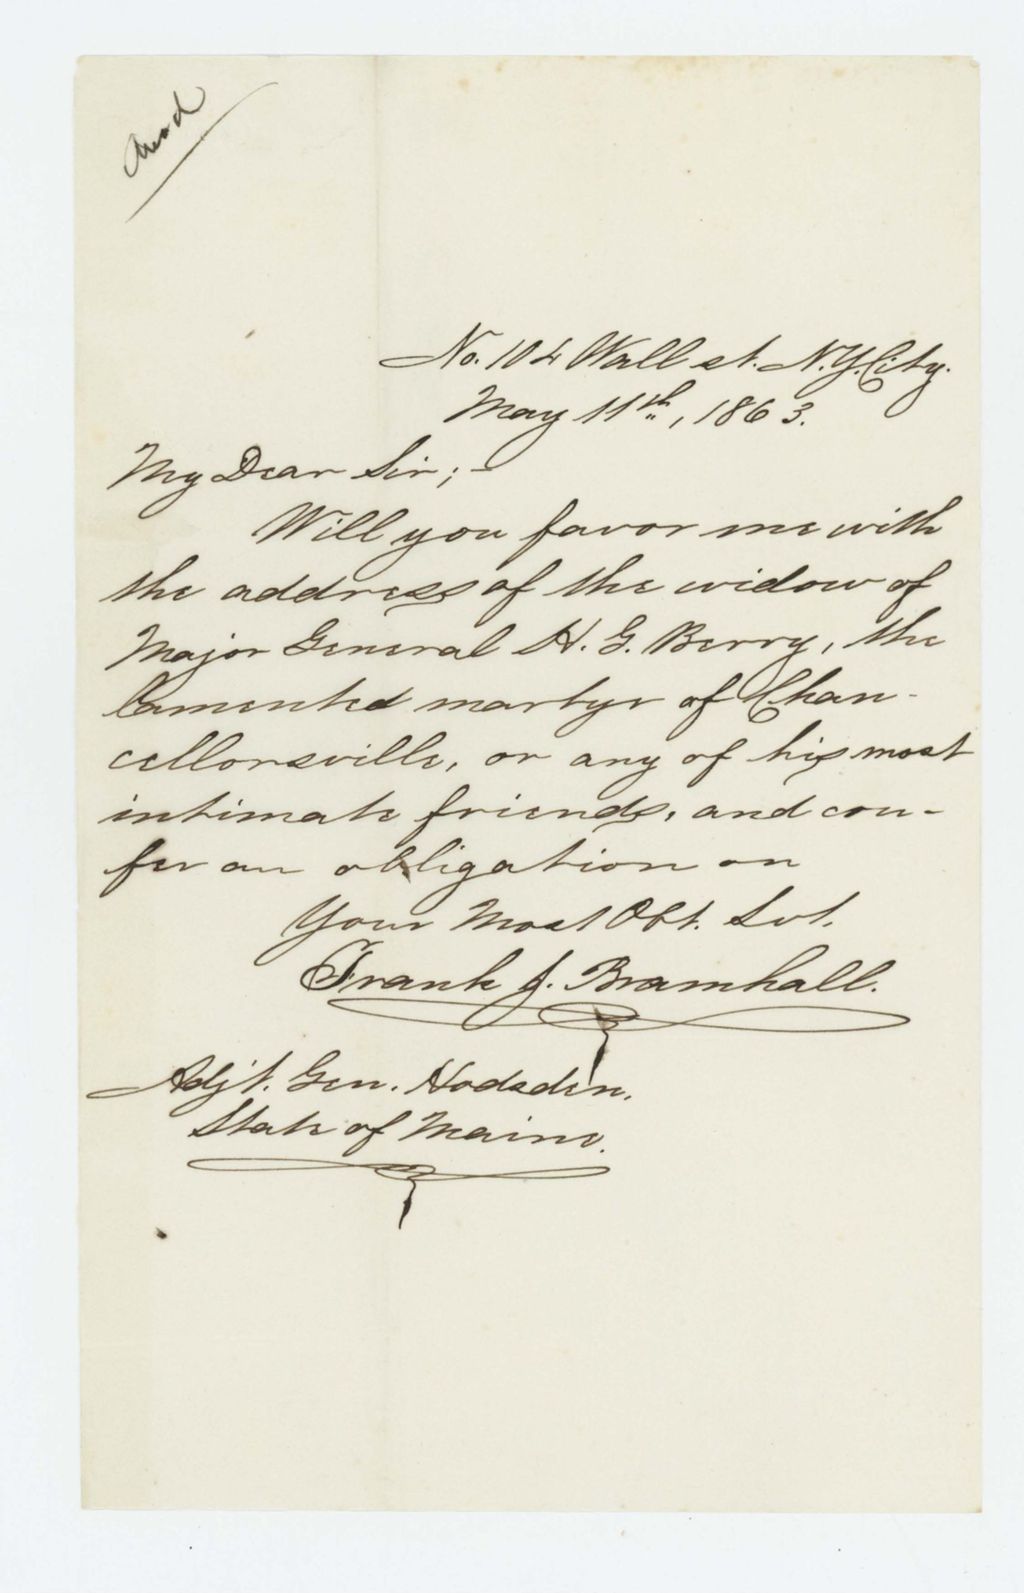 No. 104 Wall st. N.Y. City.
May 11th, 1863.
My Dear Sir; -
Will you favor me with
the address of the widow of
Major General H. G. Berry, the
lamented martyr of Chan-
cellorsville, or any of his most
intimate friends, and con-
fer an obligation on
Your Most Obt. Svt.
Frank J. Bramhall.
Adjt. Gen. Hodsdon.
State of Maine.